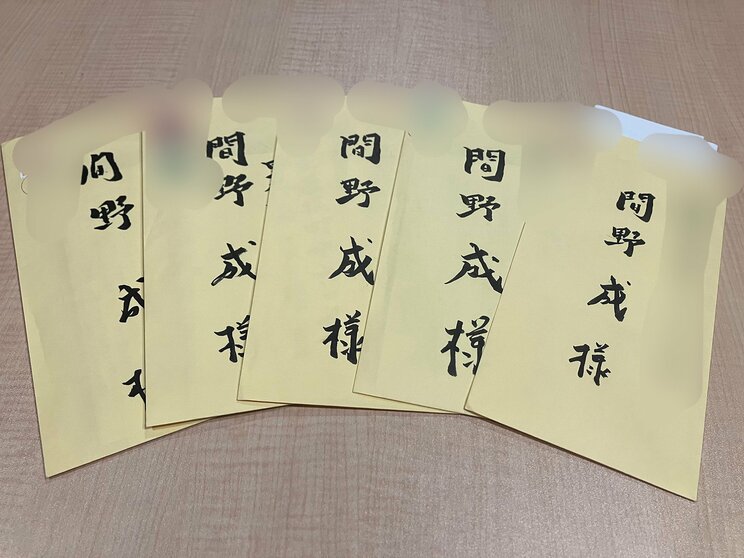 間野 成
間野 成 様
間野 成 様
間野 成 様
間野 成 様